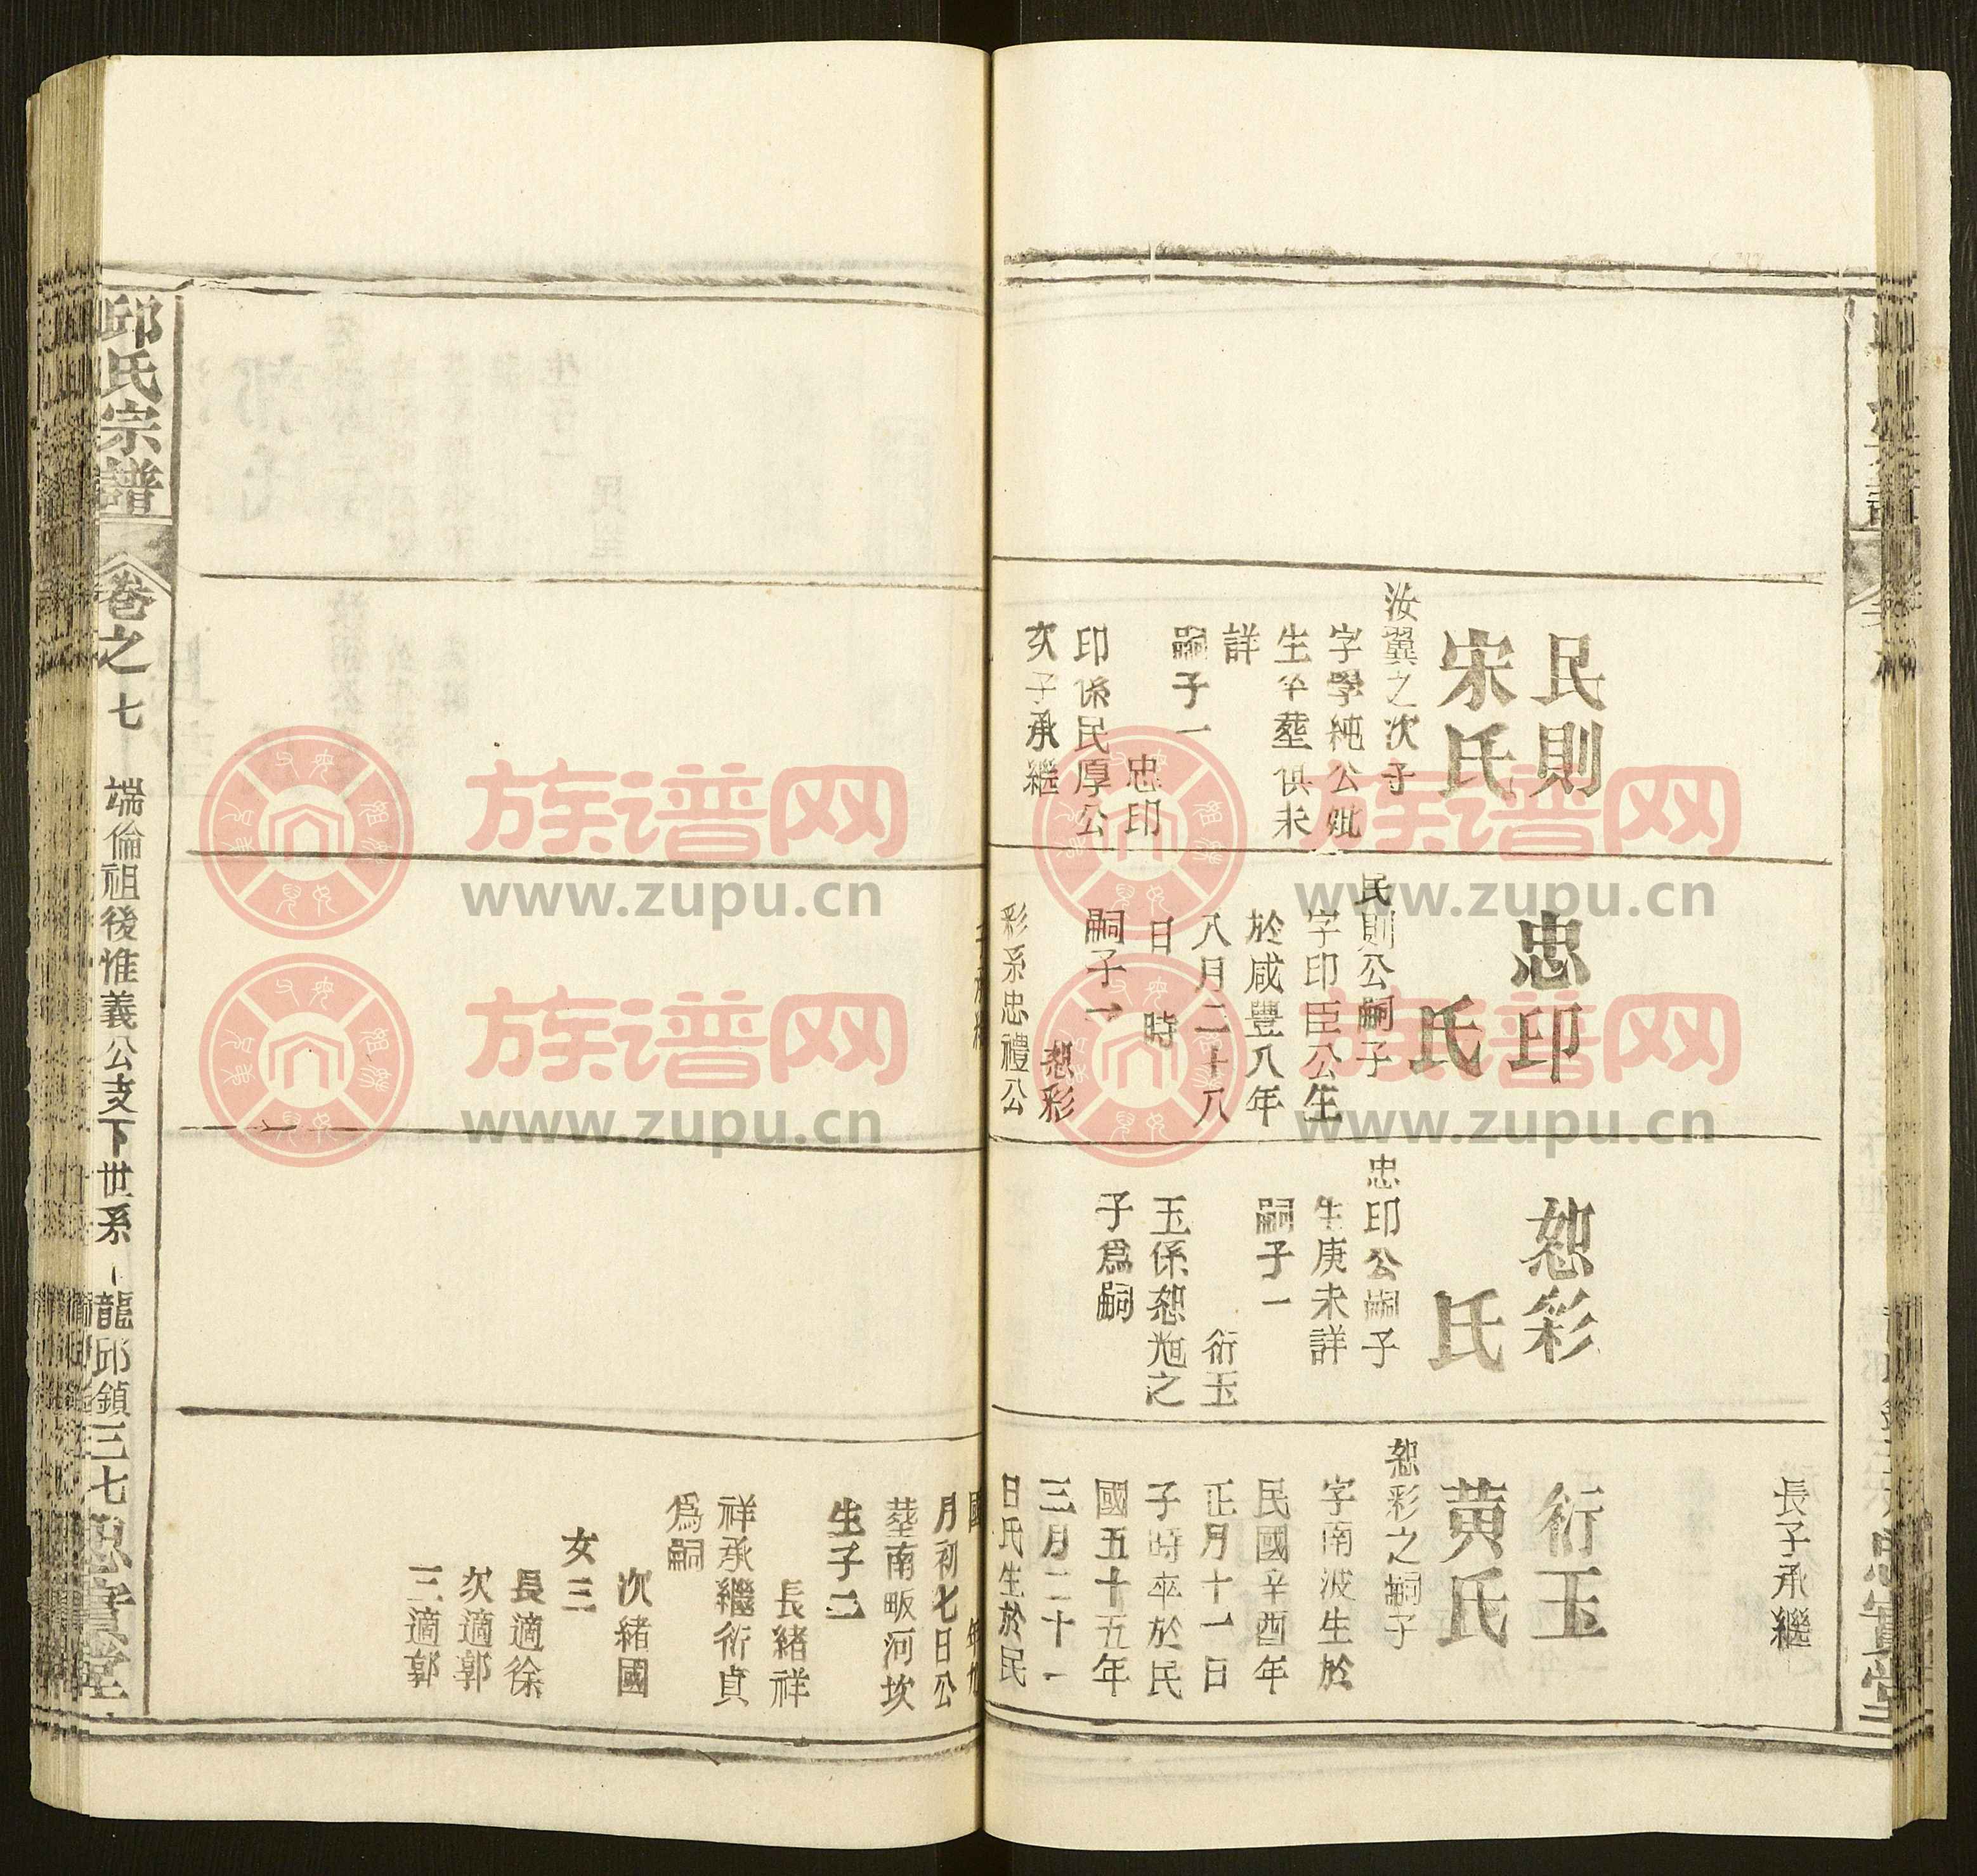 長子承繼
民則
宋氏
汝翼之次子
字學純公妣
生卒塟俱未
詳
嗣子一
忠印
印係民厚公
次子承繼
忠印
氏
民則公嗣子
字印臣公生
於咸豐八年
八月二十八
日 時
嗣子一
恕彩
彩系忠禮公
子承繼
恕彩
氏
忠印公嗣子
生庚未詳
嗣子一
衍玉
玉係恕旭之
子爲嗣
衍玉
黄氏
恕彩之嗣子
字南波生於
民國辛酉年
正月十一日
子時卒於民
國五十五年
三月二十一
日氏生於民
國 年九
月初七日公
塟南畈河坎
生子二
長緒祥
祥承繼衍貞
爲嗣
次緒國
女三
長適徐
次適郭
三適郭
邱氏宗譜
卷之七
端倫祖後惟義公支下世系
龍邱鎮三七思實堂
族谱网
www.zupu.cn
族谱网
www.zupu.cn
族谱网
www.zupu.cn
族谱网
www.zupu.cn